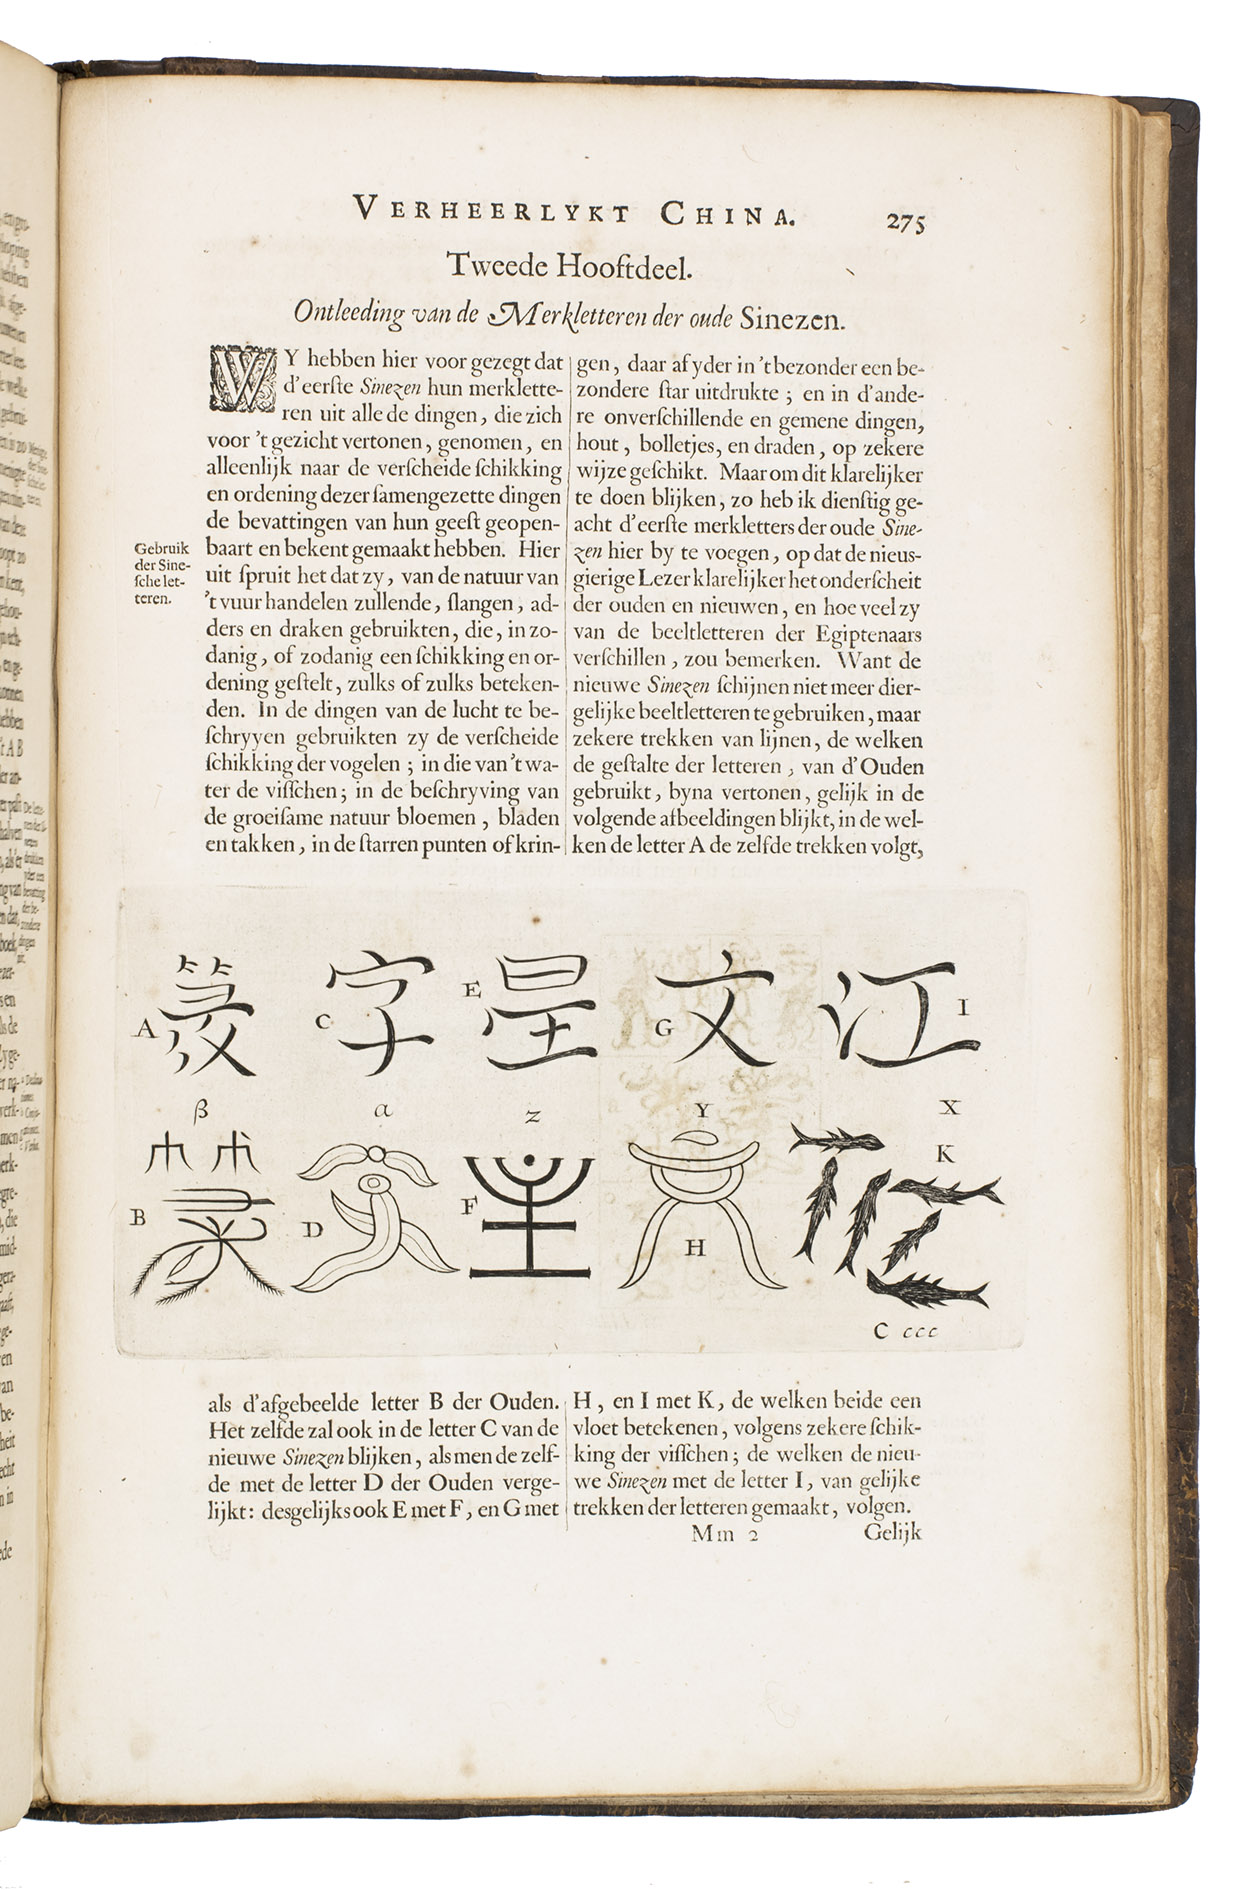 VERHEERLYKT CHINA. 275
Tweede Hooftdeel.
Ontleeding van de Merkletteren der oude Sinezen.
WY hebben hier voor gezegt dat
d'eerſte Sinezen hun merklette-
ren uit alle de dingen, die zich
voor 't gezicht vertonen, genomen, en
alleenlijk naar de verſcheide ſchikking
en ordening dezer ſamengezette dingen
de bevattingen van hun geeſt geopen-
baart en bekent gemaakt hebben. Hier
uit ſpruit het dat zy, van de natuur van
't vuur handelen zullende, ſlangen, ad-
ders en draken gebruikten, die, in zo-
danig, of zodanig een ſchikking en or-
dening geſtelt, zulks of zulks beteken-
den. In de dingen van de lucht te be-
ſchryven gebruikten zy de verſcheide
ſchikking der vogelen; in die van 't wa-
ter de viſſchen; in de beſchryving van
de groeiſame natuur bloemen, bladen
en takken, in de ſtarren punten of krin-
Gebruik
der Sine-
ſche let-
teren.
gen, daar af yder in 't bezonder een be-
zondere ſtar uitdrukte; en in d'ande-
re onverſchillende en gemene dingen,
hout, bolletjes, en draden, op zekere
wijze geſchikt. Maar om dit klarelijker
te doen blijken, zo heb ik dienſtig ge-
acht d'eerſte merkletters der oude Sine-
zen hier by te voegen, op dat de nieus-
gierige Lezer klarelijker het onderſcheit
der ouden en nieuwen, en hoe veel zy
van de beeltletteren der Egiptenaars
verſchillen, zou bemerken. Want de
nieuwe Sinezen ſchijnen niet meer dier-
gelijke beeltletteren te gebruiken, maar
zekere trekken van lijnen, de welken
de geſtalte der letteren, van d'Ouden
gebruikt, byna vertonen, gelijk in de
volgende afbeeldingen blijkt, in de wel-
ken de letter A de zelfde trekken volgt,
A C 字 E G 文 江 I
β α z Y X
B D F H K
C ccc
als d'afgebeelde letter B der Ouden.
Het zelfde zal ook in de letter C van de
nieuwe Sinezen blijken, als men de zelf-
de met de letter D der Ouden verge-
lijkt: desgelijks ook E met F, en G met
H, en I met K, de welken beide een
vloet betekenen, volgens zekere ſchik-
king der viſſchen; de welken de nieu-
we Sinezen met de letter I, van gelijke
trekken der letteren gemaakt, volgen.
Mm 2 Gelijk